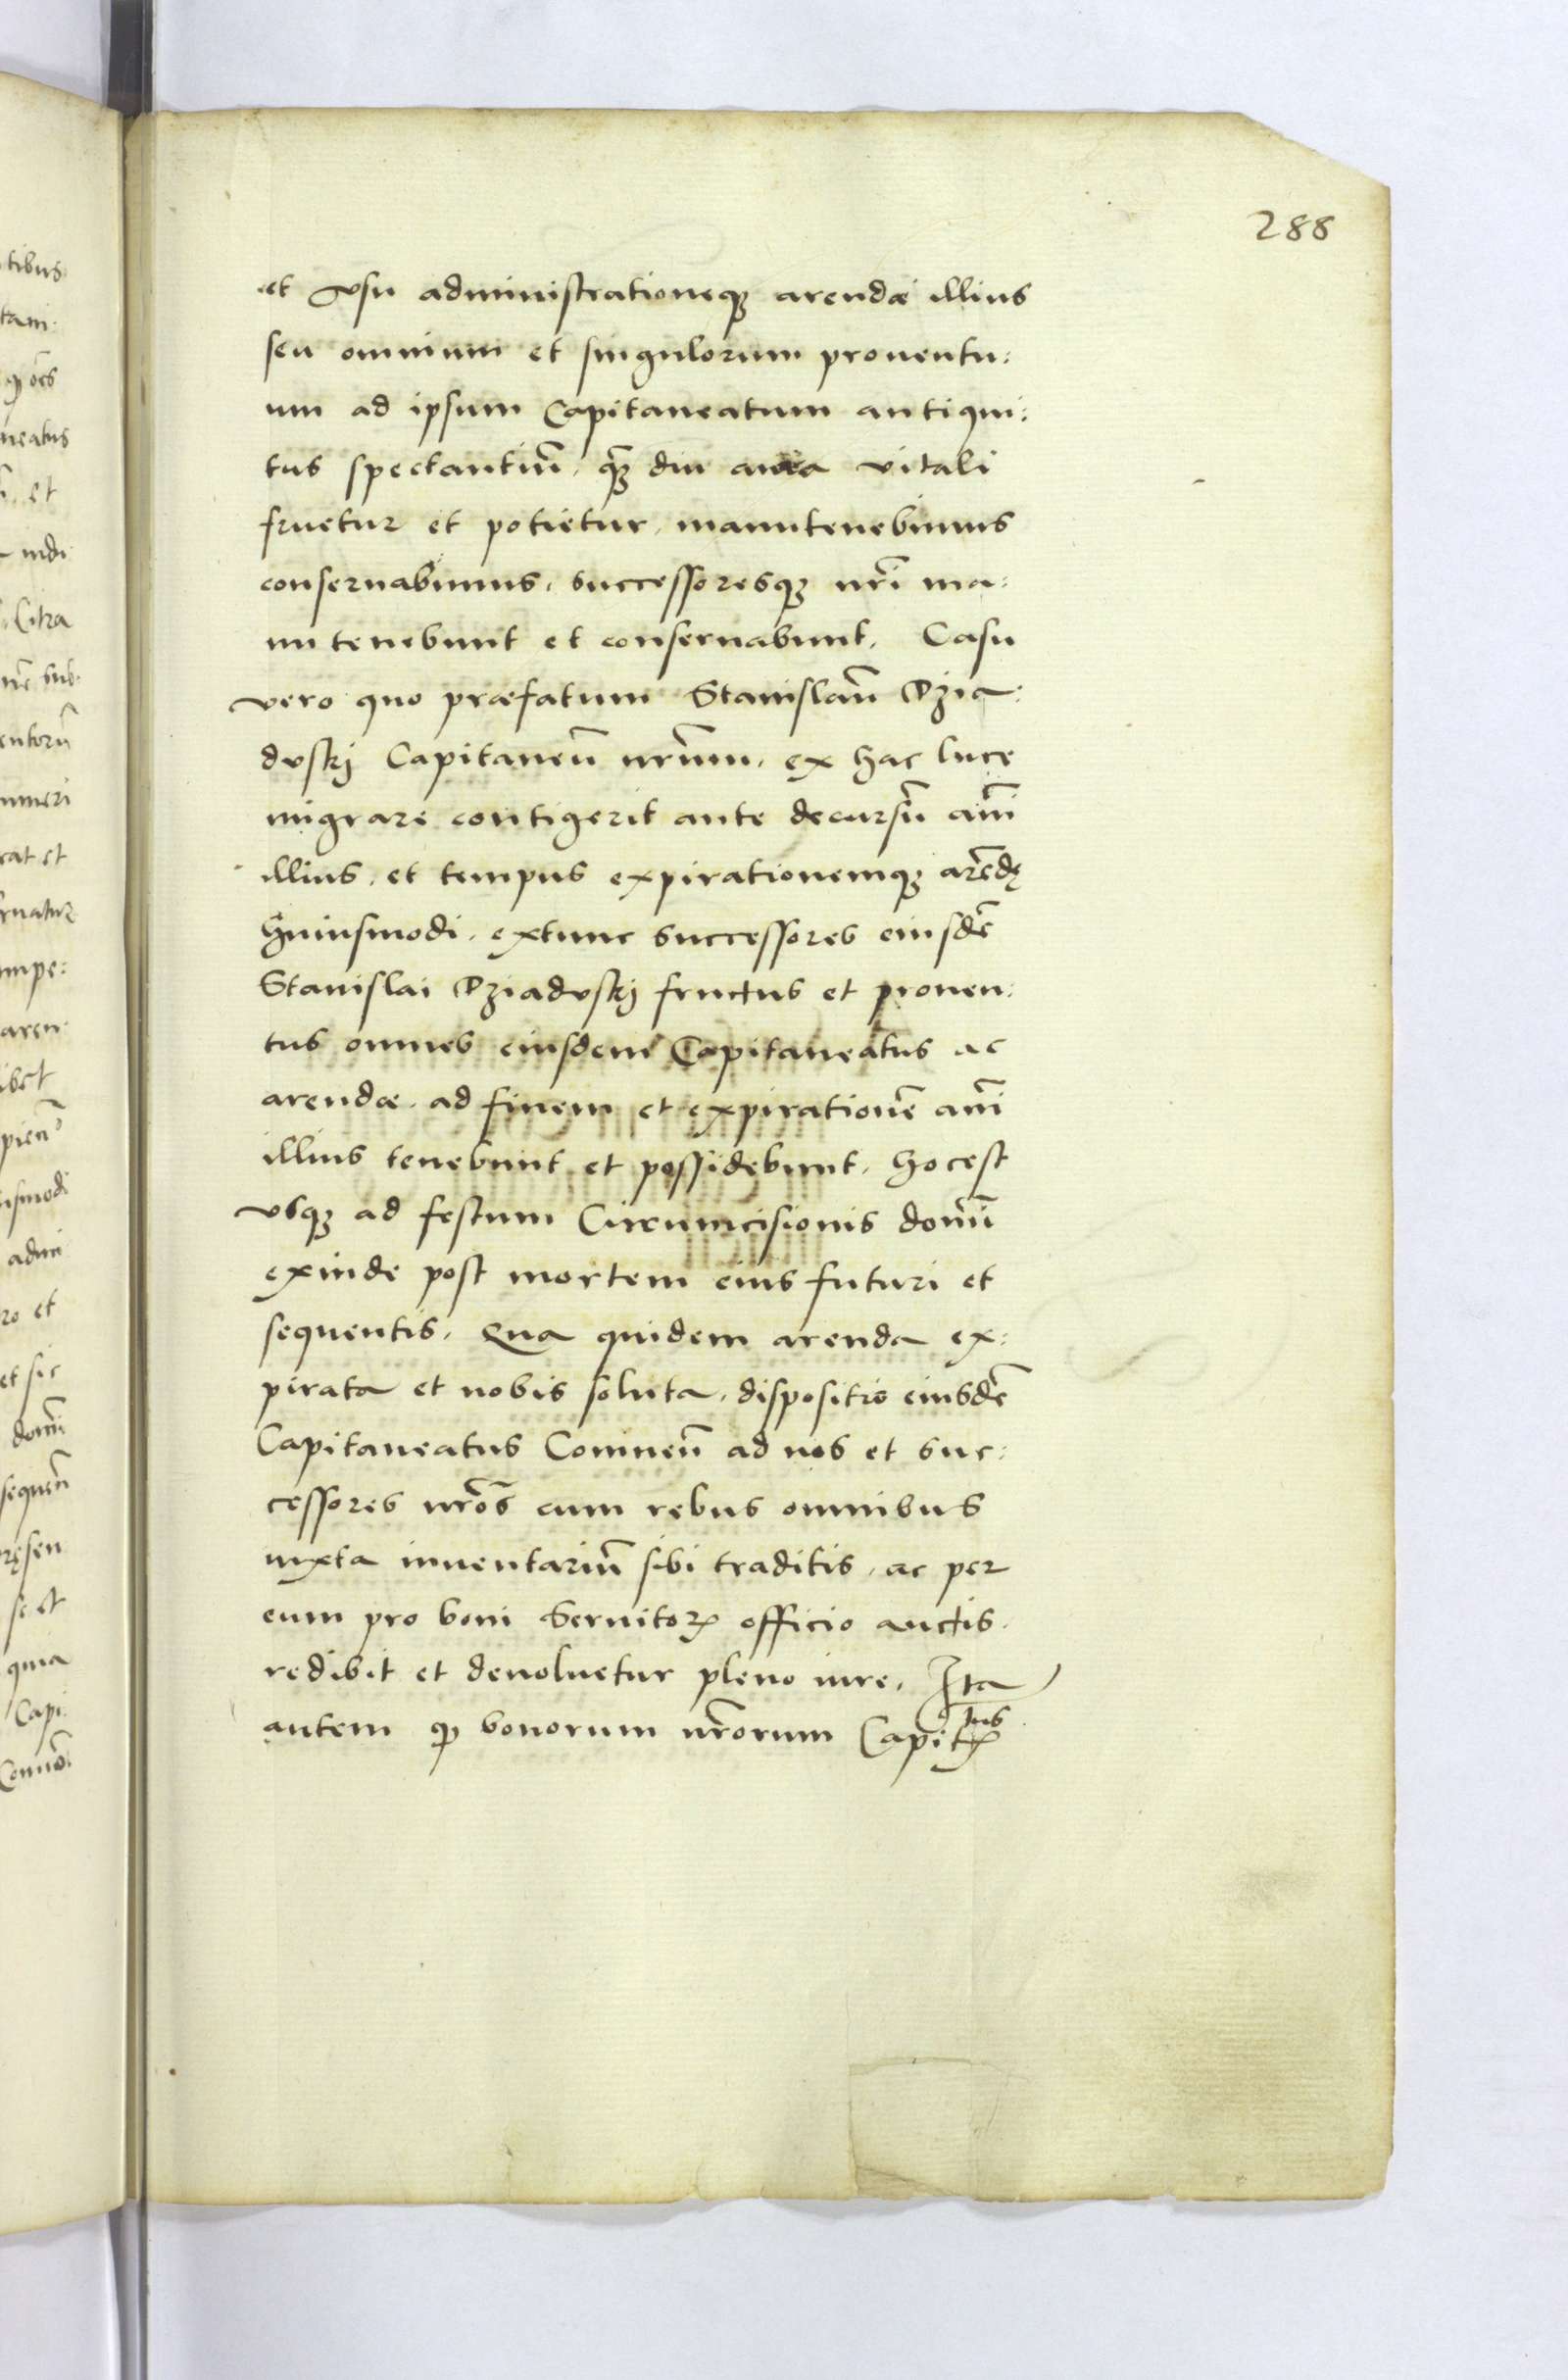 288
et vsu administrationeqꝫ arendæ illius
seu omnium et singulorum prouentu:
um ad ipsum Capitaneatum antiqui:
tus spectantiū, qꝫ diu aura vitali
fruetur et potietur, manutenebimus
conseruabimus, successoresqꝫ nrī ma:
nu tenebunt et conseruabunt, Casu
vero quo præfatum Stanislaū Dzia:
dvskj Capitaneū nrūm, ex hac luce
migrare contigerit ante decursū annī
illius, et tempus expirationemqꝫ arēdę
huiusmodi, extunc successores eiusdē
Stanislai Dziadvskj fructus et prouen:
tus omnes eiusdem Capitaneatus ac
arendæ, ad finem et expirationē annī
illius tenebunt et possidebunt, hoc est
vsqꝫ ad festum Circumcisionis domī
exinde post mortem eius futuri et
sequentis, Qua quidem arenda ex:
pirata et nobis soluta, dispositio eiusdē
Capitaneatus Conineñ ad nos et suc:
cessores nrōs cum rebus omnibus
iuxta inuentariū sibi traditis, ac per
eum pro boni Seruitorꝭ officio auctis,
redibit et deuoluetur pleno iure, Ita
autem ꝙ bonorum nrōrum Capit
tibus
tam
ꝙ oēs
neatus
et
indi
Citra
sub
entorū
numeri
rat et
ruatur
impe:
aren
ibet
pień
ismodi
admi
ro et
et sic
domī
sequeñ
ręsen
se et
quia
Capi: